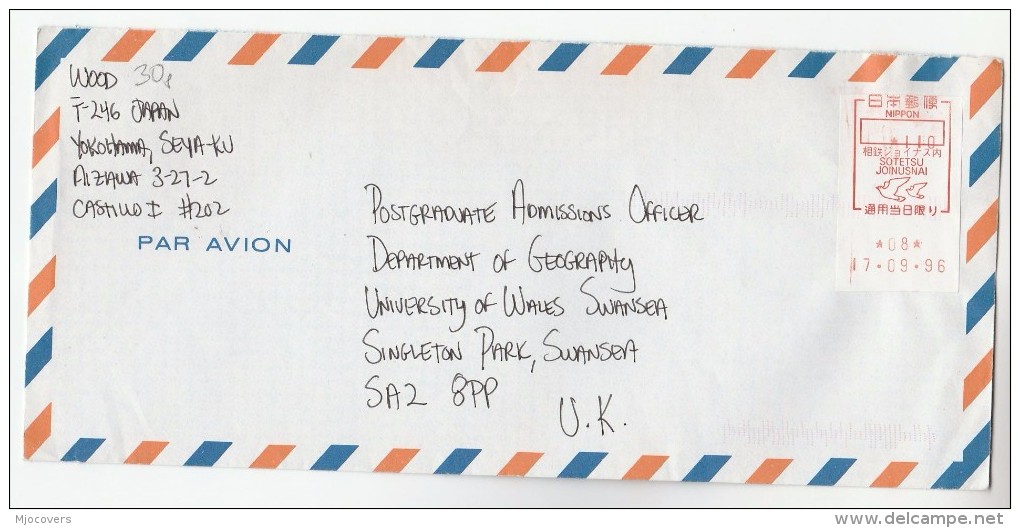 WOOD 30p
〒-246 JAPAN
YOKOHAMA, SEYA-KU
AIZAWA 3-27-2
CASTILLO I #202
PAR AVION
POSTGRADUATE ADMISSIONS OFFICER
DEPARTMENT OF GEOGRAPHY
UNIVERSITY OF WALES SWANSEA
SINGLETON PARK, SWANSEA
SA2 8PP
U.K.
日本郵便
NIPPON
*110
相鉄ジョイナス内
SOTETSU
JOINUSNAI
適用当日限り
*08*
17.09.96
Mjocovers
www.delcampe.net